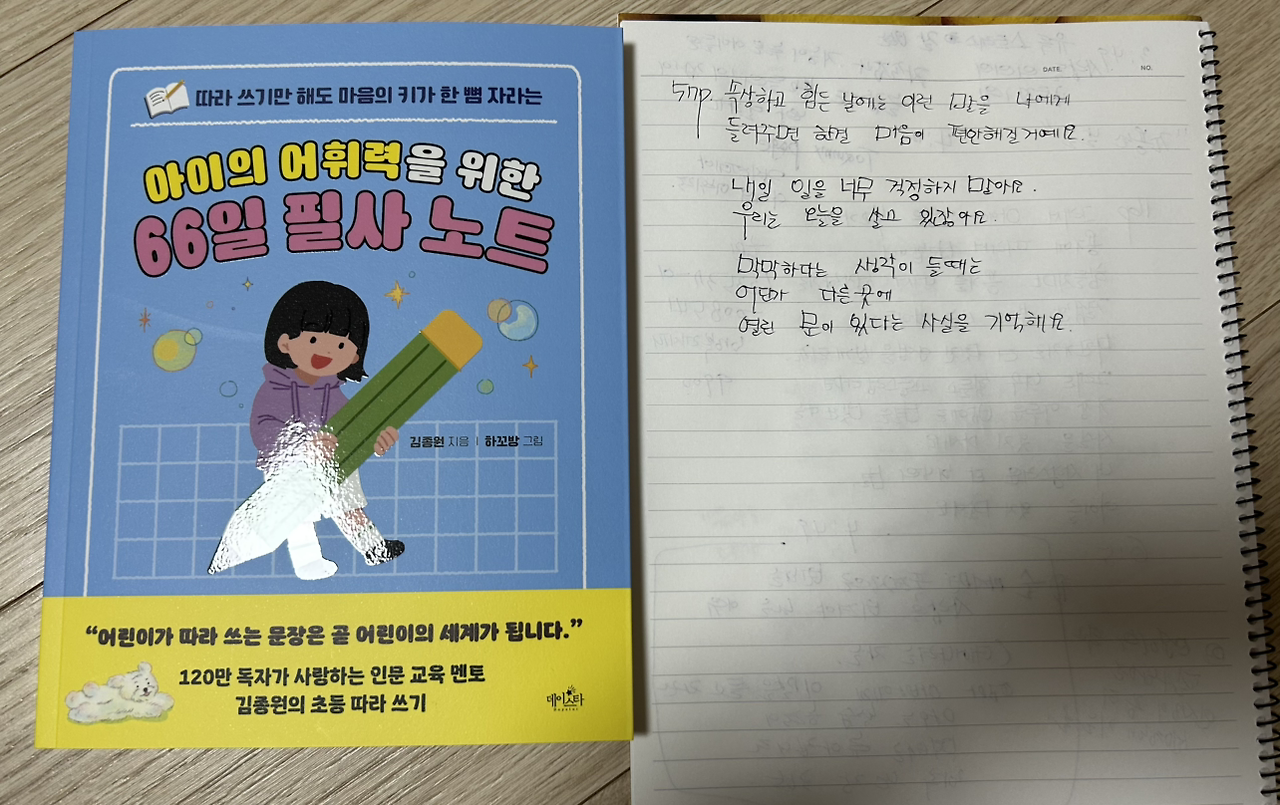 따라 쓰기만 해도 마음의 키가 한 뼘 자라는
아이의 어휘력을 위한
66일 필사 노트
김종원 지음 | 하꼬방 그림
“어린이가 따라 쓰는 문장은 곧 어린이의 세계가 됩니다.”
120만 독자가 사랑하는 인문 교육 멘토
김종원의 초등 따라 쓰기
데이스타
Daystar
DATE. NO.
57p. 속상하고 힘든 날에는 이런 말을 나에게
들려주면 한결 마음이 편안해질거예요.
내일 일을 너무 걱정하지 말아요.
우리는 오늘을 살고 있잖아요.
막막하다는 생각이 들때는
어딘가 다른 곳에
열린 문이 있다는 사실을 기억해요.